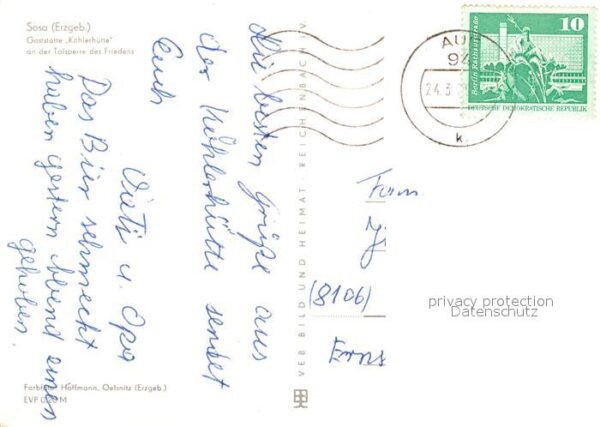 Sosa (Erzgeb.)
Gaststätte „Köhlerhütte"
an der Talsperre des Friedens
Die besten Grüße aus
der Köhlerhütte sendet
Euch
u. Opa
Das Bier schmeckt
haben gestern abend einen
gehoben.
Farbfoto: Hoffmann, Oelsnitz (Erzgeb.)
EVP 0,20 M
VEB BILD UND HEIMAT · REICHENBACH i. V.
AU
94
24.3.
k
10
Berlin Rathausstraße
DEUTSCHE DEMOKRATISCHE REPUBLIK
Fam
(8106)
Erns
privacy protection
Datenschutz